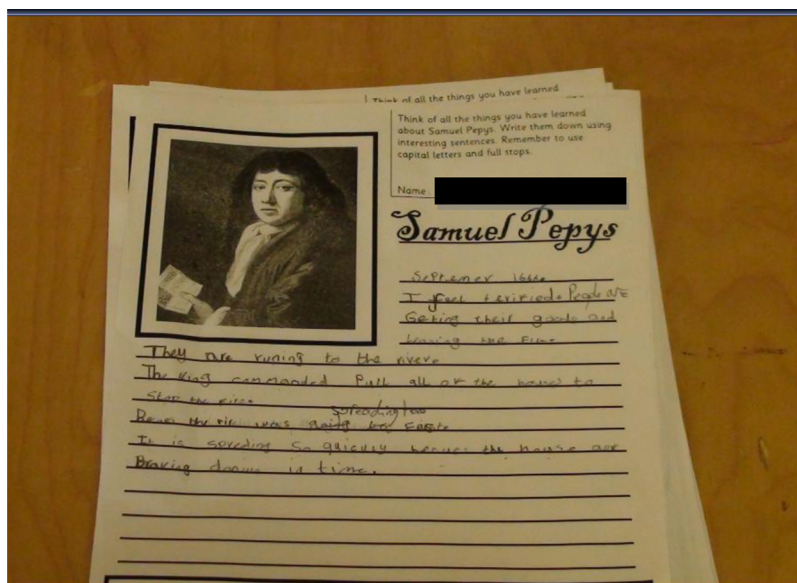 Think of all the things you have learned
Think of all the things you have learned
about Samuel Pepys. Write them down using
interesting sentences. Remember to use
capital letters and full stops.
Name:
Samuel Pepys
Septemer 1666
I feel terified. People are
Geting their goods and
leaving the Fire.
They are runing to the river.
The King commanded Pull all of the houses to
Stop the fire.
spreading too
the fire was going Fast.
It is spreding so quickly the house are
Braking down in time.